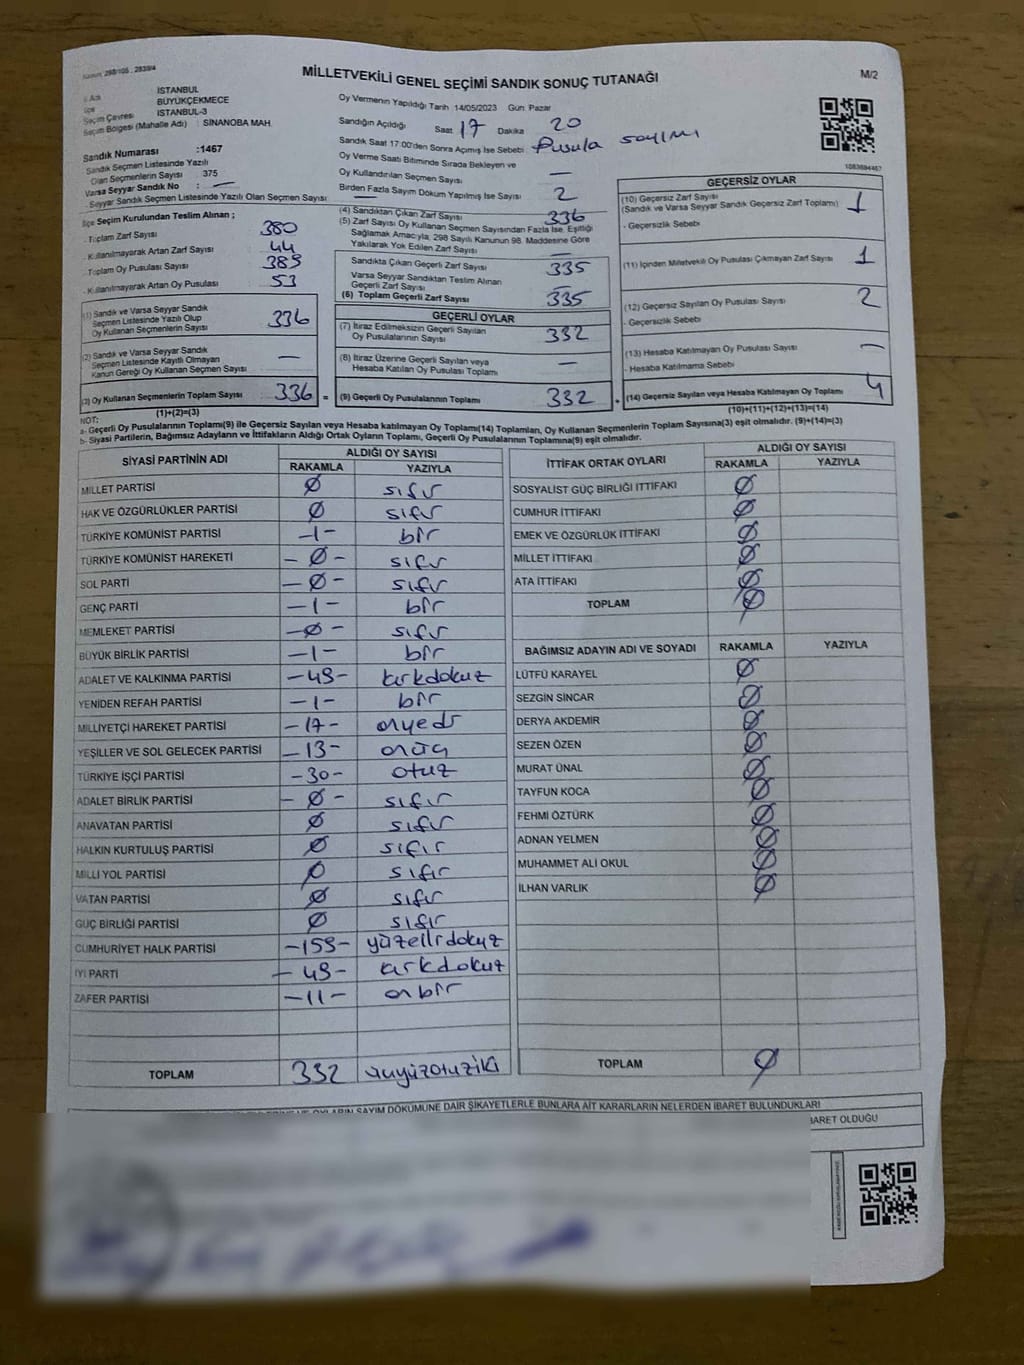 Kanun: 298/105 , 2839/4
MİLLETVEKİLİ GENEL SEÇİMİ SANDIK SONUÇ TUTANAĞI
M/2
İl Adı İSTANBUL
İlçe BÜYÜKÇEKMECE
Seçim Çevresi İSTANBUL-3
Seçim Bölgesi (Mahalle Adı) : SİNANOBA MAH.
Oy Vermenin Yapıldığı Tarih 14/05/2023 Gün Pazar
Sandığın Açıldığı Saat 17 Dakika 20
Sandık Saat 17:00'den Sonra Açımış İse Sebebi Pusula sayımı
Oy Verme Saati Bitiminde Sırada Bekleyen ve
Oy Kullandırılan Seçmen Sayısı —
Birden Fazla Sayım Döküm Yapılmış İse Sayısı 2
1083684467
Sandık Numarası :1467
Sandık Seçmen Listesinde Yazılı
Olan Seçmenlerin Sayısı 375
Varsa Seyyar Sandık No : —
Seyyar Sandık Seçmen Listesinde Yazılı Olan Seçmen Sayısı —
İlçe Seçim Kurulundan Teslim Alınan ;
Toplam Zarf Sayısı 380
Kullanılmayarak Artan Zarf Sayısı 44
Toplam Oy Pusulası Sayısı 389
Kullanılmayarak Artan Oy Pusulası 53
(1) Sandık ve Varsa Seyyar Sandık
Seçmen Listesinde Yazılı Olup
Oy Kullanan Seçmenlerin Sayısı 336
(2) Sandık ve Varsa Seyyar Sandık
Seçmen Listesinde Kayıtlı Olmayan
Kanun Gereği Oy Kullanan Seçmen Sayısı —
(3) Oy Kullanan Seçmenlerin Toplam Sayısı 336 =
(1)+(2)=(3)
(4) Sandıktan Çıkan Zarf Sayısı 336
(5) Zarf Sayısı Oy Kullanan Seçmen Sayısından Fazla İse, Eşitliği
Sağlamak Amacıyla, 298 Sayılı Kanunun 98. Maddesine Göre
Yakılarak Yok Edilen Zarf Sayısı —
Sandıkta Çıkan Geçerli Zarf Sayısı 335
Varsa Seyyar Sandıktan Teslim Alınan
Geçerli Zarf Sayısı —
(6) Toplam Geçerli Zarf Sayısı 335
GEÇERLİ OYLAR
(7) İtiraz Edilmeksizin Geçerli Sayılan
Oy Pusulalarının Sayısı 332
(8) İtiraz Üzerine Geçerli Sayılan veya
Hesaba Katılan Oy Pusulası Toplamı —
(9) Geçerli Oy Pusulalarının Toplamı 332 +
GEÇERSİZ OYLAR
(10) Geçersiz Zarf Sayısı
(Sandık ve Varsa Seyyar Sandık Geçersiz Zarf Toplamı) 1
- Geçersizlik Sebebi
(11) İçinden Milletvekili Oy Pusulası Çıkmayan Zarf Sayısı 1
(12) Geçersiz Sayılan Oy Pusulası Sayısı 2
- Geçersizlik Sebebi
(13) Hesaba Katılmayan Oy Pusulası Sayısı —
- Hesaba Katılmama Sebebi
(14) Geçersiz Sayılan veya Hesaba Katılmayan Oy Toplamı 4
(10)+(11)+(12)+(13)=(14)
NOT:
a- Geçerli Oy Pusulalarının Toplamı(9) ile Geçersiz Sayılan veya Hesaba Katılmayan Oy Toplamı(14) Toplamları, Oy Kullanan Seçmenlerin Toplam Sayısına(3) eşit olmalıdır. (9)+(14)=(3)
b- Siyasi Partilerin, Bağımsız Adayların ve İttifakların Aldığı Ortak Oyların Toplamı, Geçerli Oy Pusulalarının Toplamına(9) eşit olmalıdır.
SİYASİ PARTİNİN ADI ALDIĞI OY SAYISI
RAKAMLA YAZIYLA
MİLLET PARTİSİ 0 sıfır
HAK VE ÖZGÜRLÜKLER PARTİSİ 0 sıfır
TÜRKİYE KOMÜNİST PARTİSİ -1- bir
TÜRKİYE KOMÜNİST HAREKETİ -0- sıfır
SOL PARTİ -0- sıfır
GENÇ PARTİ -1- bir
MEMLEKET PARTİSİ -0- sıfır
BÜYÜK BİRLİK PARTİSİ -1- bir
ADALET VE KALKINMA PARTİSİ -49- kırkdokuz
YENİDEN REFAH PARTİSİ -1- bir
MİLLİYETÇİ HAREKET PARTİSİ -17- onyedi
YEŞİLLER VE SOL GELECEK PARTİSİ -13- onüç
TÜRKİYE İŞÇİ PARTİSİ -30- otuz
ADALET BİRLİK PARTİSİ -0- sıfır
ANAVATAN PARTİSİ 0 sıfır
HALKIN KURTULUŞ PARTİSİ 0 sıfır
MİLLİ YOL PARTİSİ 0 sıfır
VATAN PARTİSİ 0 sıfır
GÜÇ BİRLİĞİ PARTİSİ 0 sıfır
CUMHURİYET HALK PARTİSİ -159- yüzellidokuz
İYİ PARTİ -49- kırkdokuz
ZAFER PARTİSİ -11- onbir
TOPLAM 332 üçyüzotuziki
İTTİFAK ORTAK OYLARI ALDIĞI OY SAYISI
RAKAMLA YAZIYLA
SOSYALİST GÜÇ BİRLİĞİ İTTİFAKI 0
CUMHUR İTTİFAKI 0
EMEK VE ÖZGÜRLÜK İTTİFAKI 0
MİLLET İTTİFAKI 0
ATA İTTİFAKI 0
TOPLAM 0
BAĞIMSIZ ADAYIN ADI VE SOYADI RAKAMLA YAZIYLA
LÜTFÜ KARAYEL 0
SEZGİN SİNCAR 0
DERYA AKDEMİR 0
SEZEN ÖZEN 0
MURAT ÜNAL 0
TAYFUN KOCA 0
FEHMİ ÖZTÜRK 0
ADNAN YELMEN 0
MUHAMMET ALİ OKUL 0
İLHAN VARLIK 0
TOPLAM 0
SAYIM DÖKÜMUNE DAİR ŞİKAYETLERLE BUNLARA AİT KARARLARIN NELERDEN İBARET BULUNDUKLARI
BARET OLDUĞU